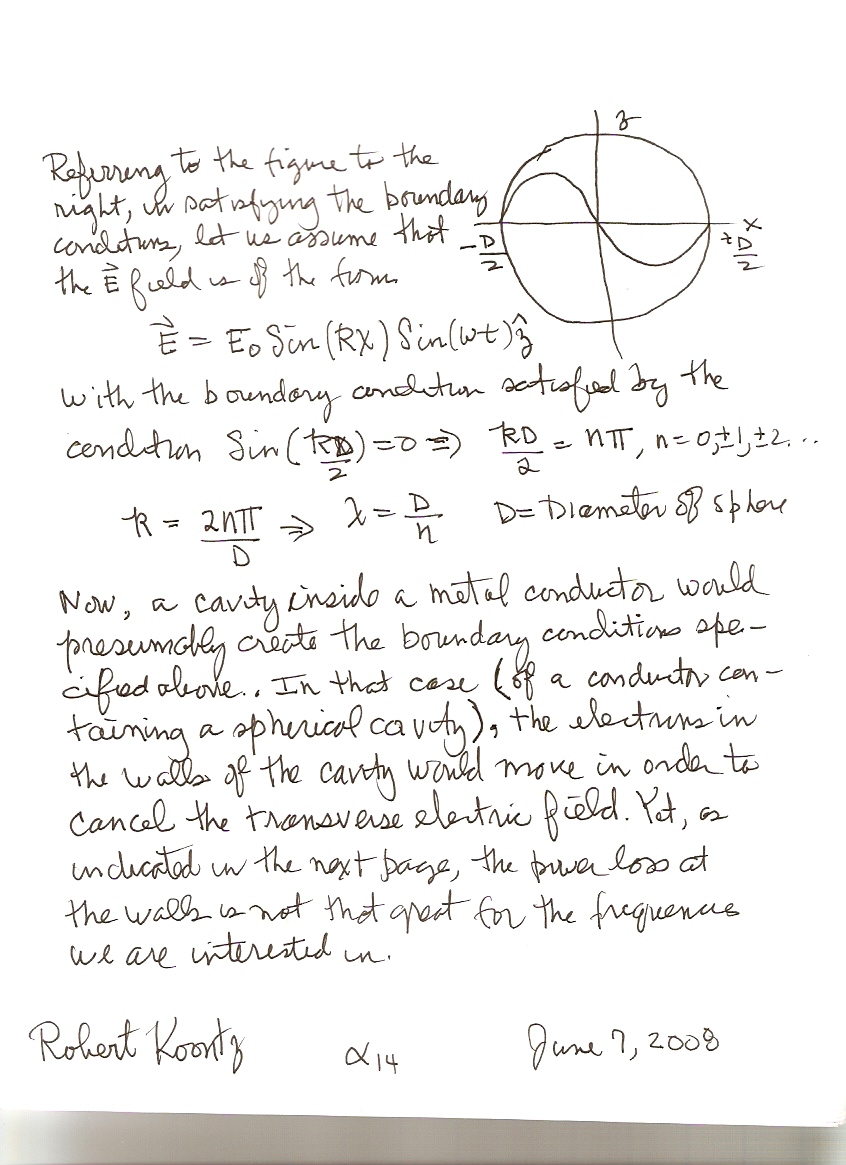 z
Referring to the figure to the
right, in satisfying the boundary
conditions, let us assume that
x
-D/2
+D/2
the E⃗ field is of the form
E⃗ = E₀ Sin(kx) Sin(ωt) ẑ
with the boundary condition satisfied by the
condition Sin(kD/2) = 0 ⇒ kD/2 = nπ, n = 0, ±1, ±2...
k = 2nπ/D ⇒ λ = D/n D = Diameter of sphere
Now, a cavity inside a metal conductor would
presumably create the boundary conditions spe-
cified above.. In that case (of a conductor con-
taining a spherical cavity), the electrons in
the walls of the cavity would move in order to
cancel the transverse electric field. Yet, as
indicated in the next page, the power loss at
the walls is not that great for the frequencies
we are interested in.
Robert Koontz α14 June 7, 2008